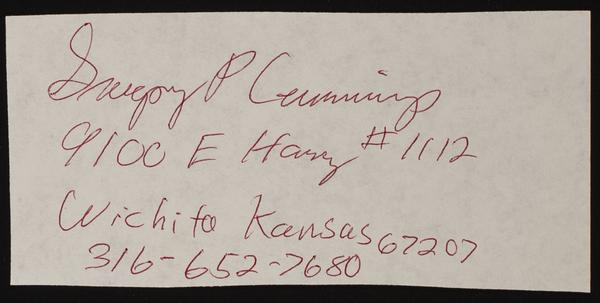 Gregory P Cummings
9100 E Harry #1112
Wichita Kansas 67207
316-652-7680